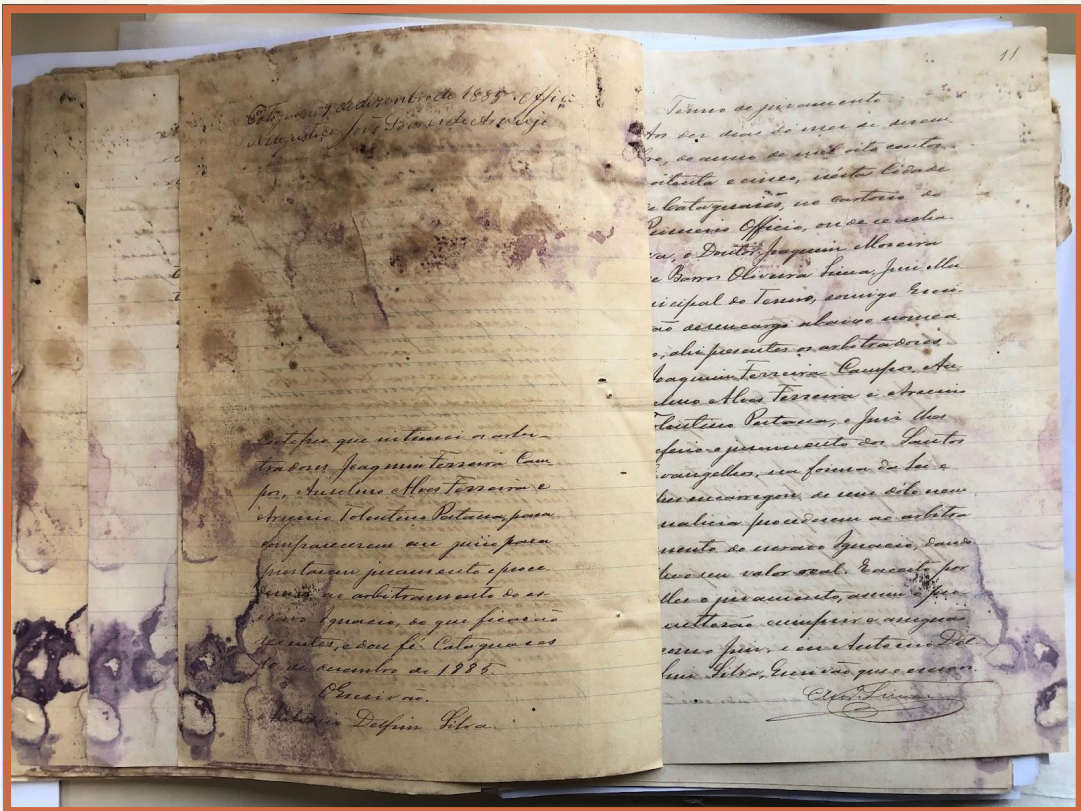 Cataguases, 9 de dezembro de 1885. O offi
José de Araujo
Certifico que intimei os arbi-
tradores Joaquim Ferreira Cam-
pos, Anselmo Alves Ferreira e
Arsenio Tolentino Pestana, para
comparecerem em juizo para
prestarem juramento e proce
derem ao arbitramento do es
cravo Ignacio, do que ficarão
scientes, e dou fé. Cataguases
10 de dezembro de 1885.
O Escrivão.
Antonio Delfim Silva.
11
Termo de juramento
Aos dez dias do mez de dezem
bro, do anno de mil oito centos
oitenta e cinco, nesta Cidade
de Cataguases, no cartorio do
Primeiro Officio, onde se acha
va, o Doutor Joaquim Moreira
de Barros Oliveira Lima, Juiz Mu
nicipal do Termo, comigo Escri-
vão de seu cargo abaixo nomea
do, ahi presentes os arbitradores
Joaquim Ferreira Campos, An
selmo Alves Ferreira e Arsenio
Tolentino Pestana, o Juiz lhes
deferio o juramento dos Santos
Evangelhos, na forma da Lei e
lhes encarregou, de sem dólo nem
malicia procederem ao arbitra
mento do escravo Ignacio, dando
lhe o seu valor real. E aceito por
elles o juramento, assim o pro
metterão cumprir e assignão
com o Juiz, e eu Antonio Del
fim Silva, Escrivão que o escrevi.
Lima